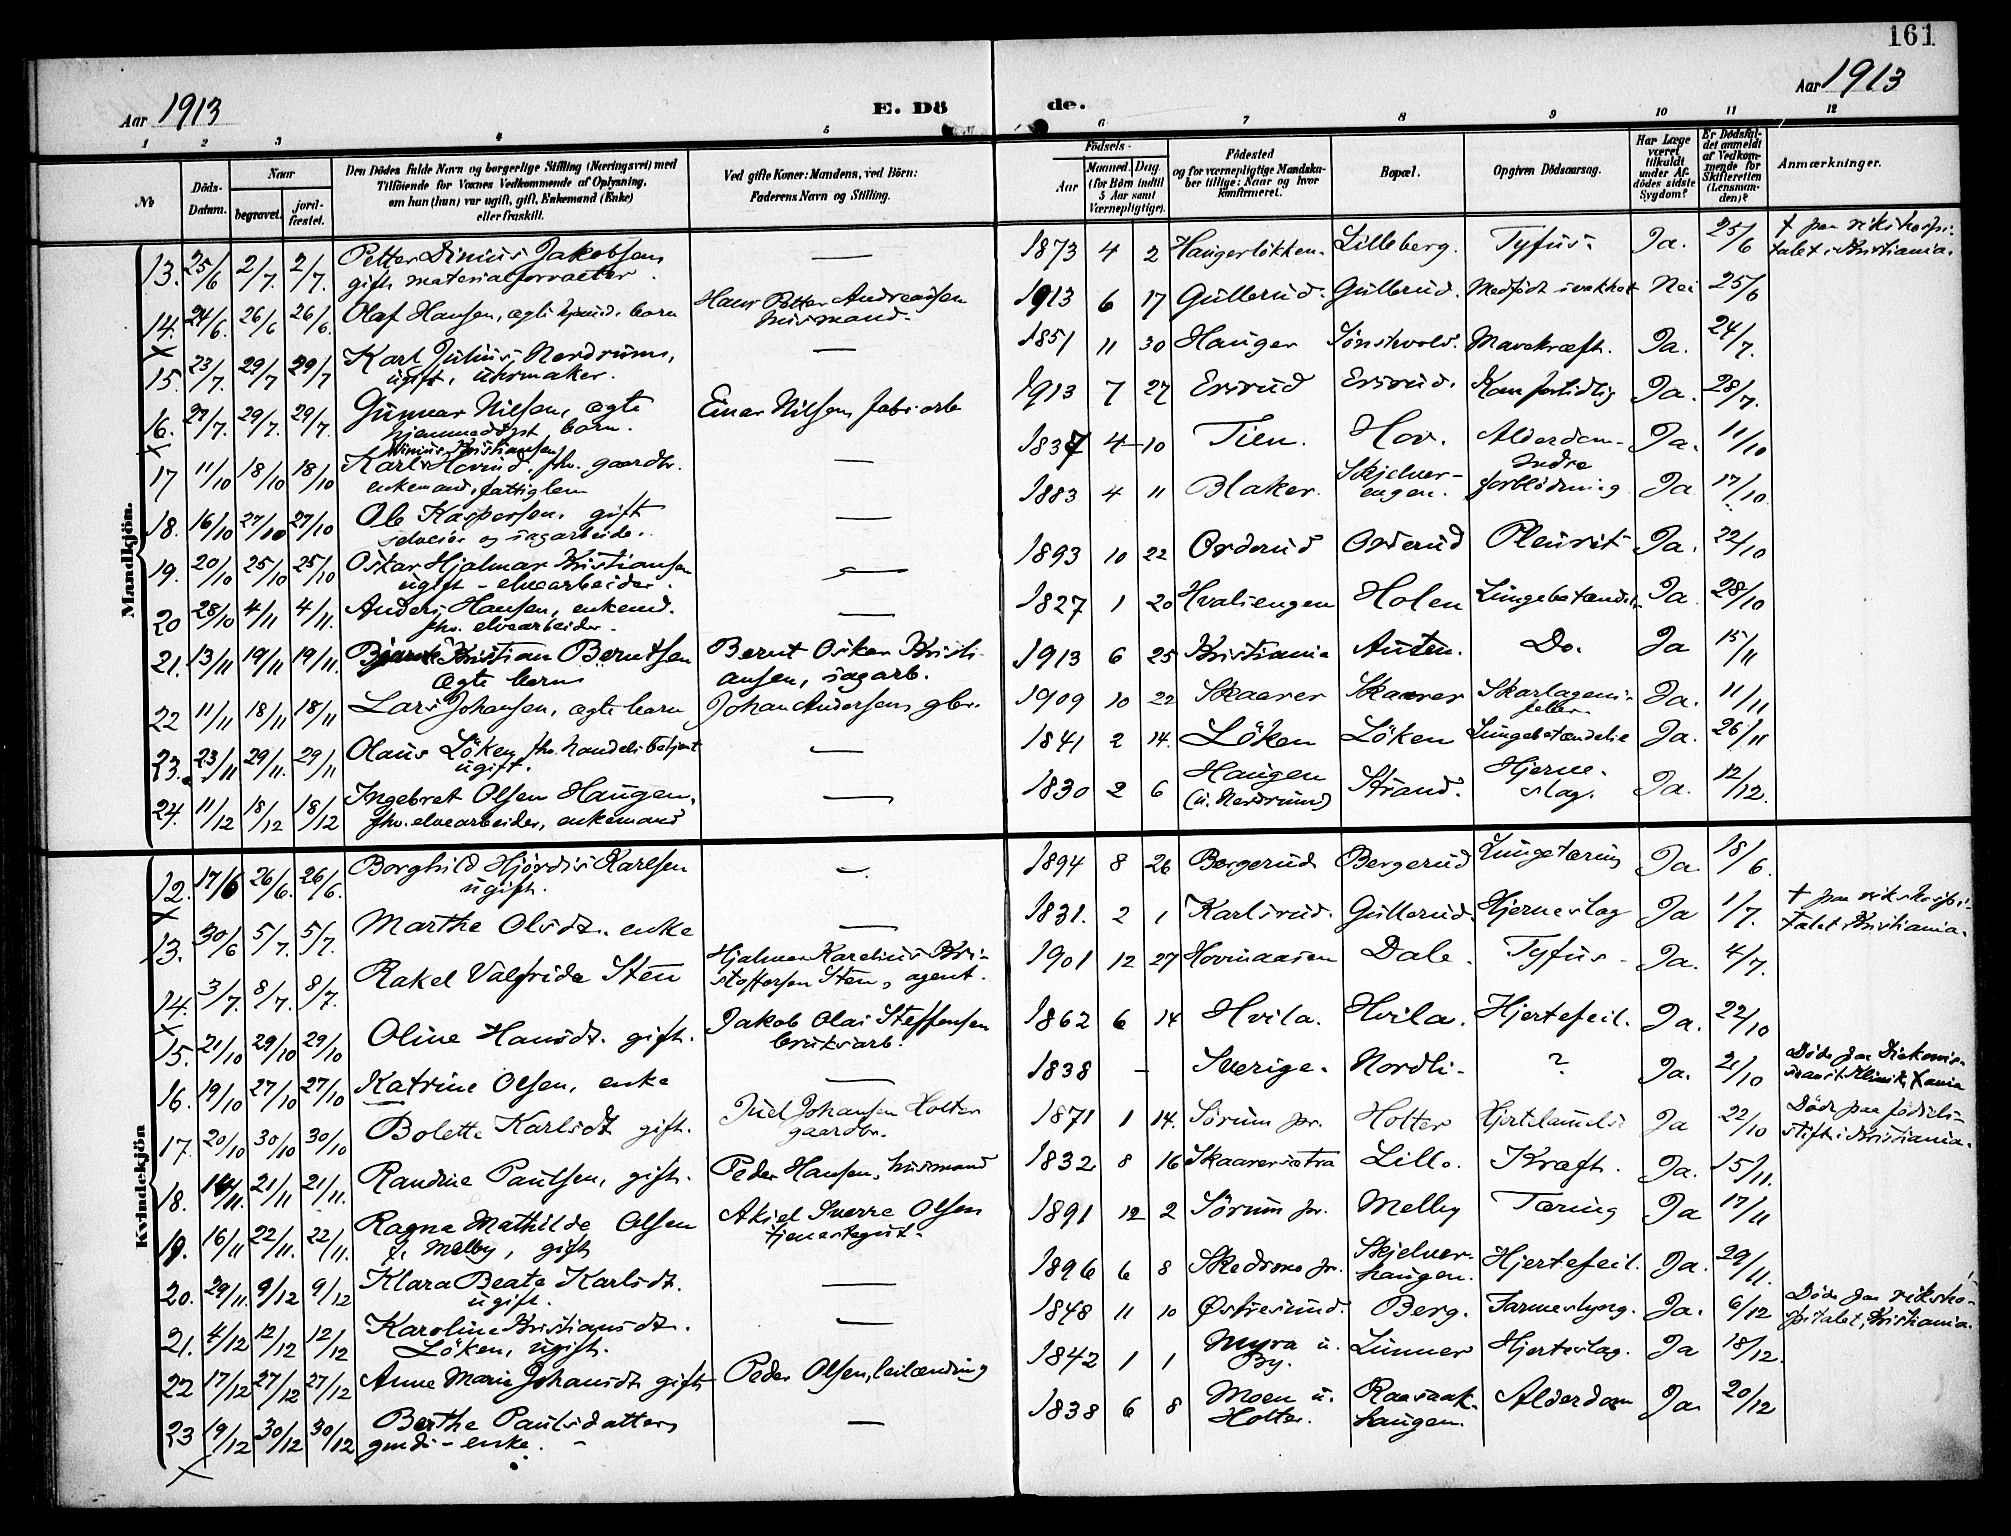 161
Aar 1913
E. Dö
de.
Aar 1913
1 2 3 4 5 6 7 8 9 10 11 12
№
Döds-
Datum.
Naar
begravet.
jord-
fæstet.
Den Dödes fulde Navn og borgerlige Stilling (Næringsvei) med
Tilföiende for Voxnes Vedkommende af Oplysning,
om han (hun) var ugift, gift, Enkemand (Enke)
eller fraskilt.
Ved gifte Koner: Mandens, ved Börn:
Faderens Navn og Stilling.
Födsels-
Aar
Maaned. Dag.
(for Börn indtil
5 Aar samt
Værnepligtige).
Födested
og for værnepligtige Mandska-
ber tillige: Naar og hvor
konfirmeret.
Bopæl.
Opgiven Dödsaarsag.
Har Læge
været
tilkaldt
under Af-
dödes sidste
Sygdom?
Er Dödsfal-
det anmeldt
af Vedkom-
mende for
Skifteretten
(Lensman-
den)?
Anmærkninger.
Mandkjön.
13. 25/6 2/7. 2/7. Petter Dinius Jakobsen — 1873 4 2 Haugerløkken. Lilleberg. Tyfus. Ja. 25/6 † paa rikshospi-
gift materialforvalter. talet i Kristiania.
14. 24/6. 26/6 26/6. Olaf Hansen, ægte hjemd. barn Hans Petter Andreassen 1913 6 17 Gullerud. Gullerud. Medfødt svakhet Nei 25/6
husmand.
15. 23/7. 29/7 29/7 Karl Julius Nordrum, — 1851 11 30 Hauger Sønstvold. Mavekræft. Ja. 24/7.
ugift, uhrmaker.
16. 27/7. 29/7. 29/7. Gunnar Nilsen, ægte Einar Nilsen, fabr. arb 1913 7 27 Ersrud Ersrud. Kom fortidlig Ja. 28/7.
hjemmedøpt barn.
Kristiansen
17 11/10 18/10 18/10 Karl Hovind, fhv. gaardbr. — 1837 4 10 Tien. Hov. Alderdom. Ja. 11/10
enkemand, fattiglem
18. 16/10 27/10 27/10 Ole Kaspersen, gift — 1883 4 11 Blaker. Skjelver-
engen. Indre
forblødning Ja 17/10.
selveier og sagarbeider.
19. 20/10 25/10 25/10 Oskar Hjalmar Kristiansen — 1893 10 22 Orderud Orderud Pleurit Ja. 22/10
ugift – elvearbeider.
20 28/10 4/11 4/11. Anders Hansen, enkemd. — 1827 1 20 Hvalsengen Holen Lungebetændel. Ja 28/10
fhv. elvearbeider.
21. 13/11 19/11 19/11. Bjarne Kristian Berntsen Bernt Oskar Kristi- 1913 6 25 Kristiania Austen. Do. Ja 15/11
ægte barn ansen, sagarb.
22 11/11 18/11 18/11 Lars Johansen, ægte barn Johan Andersen gbr. 1909 10 22 Skaarer Skaarer Skarlagens-
feber Ja. 11/11
23. 23/11 29/11. 29/11 Olaus Löken fhv. handelsbetjent — 1841 2 14. Löken Löken Lungebetændelse Ja. 26/11
ugift.
24. 11/12 18/12 18/12 Ingebret Olsen Haugen, — 1830 2 6 Haugen
(u. Nordrum) Strand. Hjerne-
slag. Ja. 12/12.
fhv. elvearbeider, enkemand
Kvindekjön
12. 17/6 26/6. 26/6. Borghild Hjördis Karlsen —. 1894 8 26 Bergerud Bergerud Lungetæring Ja 18/6.
ugift.
13. 30/6 5/7. 5/7. Marthe Olsdt. enke — 1831. 2 1 Karlsrud. Gullerud. Hjerneslag Ja 1/7. † paa rikshospi-
talet Kristiania.
14. 3/7. 8/7. 8/7. Rakel Valfrida Sten Hjalmar Karelius Kri-
stoffersen Sten, agent. 1901 12 27 Hovinaasen Dale. Tyfus. Ja. 4/7.
15. 21/10 29/10 29/10 Oline Hansdt. gift. Jakob Olai Steffensen
bruksarb. 1862 6 14 Hvila. Hvila. Hjertefeil. Ja. 22/10
16. 19/10 27/10 27/10 Katrine Olsen, enke — 1838 – Sverige. Nordli. ? Ja. 21/10 Døde paa Diakonis-
17. 20/10 30/10 30/10 Bolette Karlsdt gift. Juel Johansen Holter
gaardbr. 1871 1 14. Sörum pr. Holter Hjertelammelse Ja 22/10 Døde paa fødsels-
stift. i Kristiania.
18. 14/11. 21/11 21/11. Randine Paulsen, gift. Peder Hansen, husmand 1832 8 16 Skaarersætra Lillo. Kræft. Ja. 15/11.
19. 16/11 22/11. 22/11. Ragna Mathilde Olsen Aksel Sverre Olsen
tjenestegut. 1891 12 2 Sörum pr. Melby Tæring Ja 17/11
f. Melby, gift
20. 29/11. 9/12 9/12 Klara Beate Karlsdt. — 1896 6 8 Skedsmo pr. Skjelver-
haugen. Hjertefeil. Ja. 29/11.
ugift.
21. 4/12 12/12 12/12 Karoline Kristiansdt. — 1848 11 10 Østresund. Berg. Tarmeslyng. Ja. 6/12 Døde paa riksho-
spitalet, Kristiania.
Löken, ugift.
22 17/12 27/12 27/12 Anne Marie Johansdt. gift Peder Olsen, leilænding 1842 1 1 Myra u.
By. Linner Hjerteslag. Ja 18/12.
23 19/12 30/12 30/12 Berthe Paulsdatter — 1838 6 8 Moen u.
Holter. Raasaak-
haugen. Alderdom Ja 20/12
gmdi – enke.